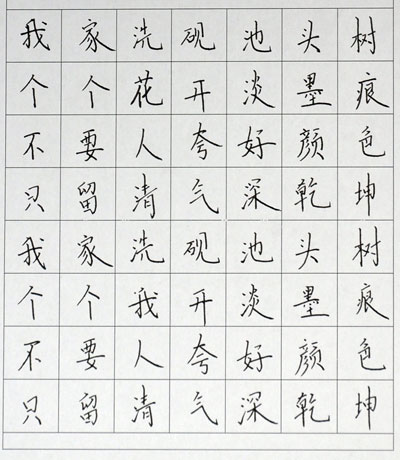 我家洗砚池头树
个个花开淡墨痕
不要人夸好颜色
只留清气深乾坤
我家洗砚池头树
个个我开淡墨痕
不要人夸好颜色
只留清气深乾坤